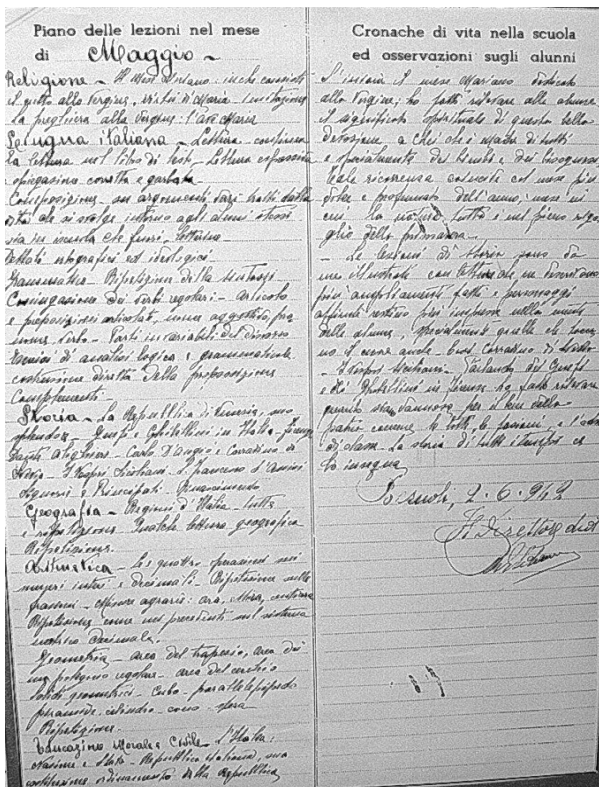 Piano delle lezioni nel mese
di Maggio -
Religione - Il mese Mariano: in che consiste
il culto alla Vergine, virtù di Maria. Imitazione
La preghiera alla Vergine: l'Ave Maria
Lingua italiana - Lettura
La lettura nel libro di testo - Lettura espressiva
spiegazione corretta e garbata
Composizione su argomenti vari tratti dalla
vita che si svolge intorno agli alunni stessi
sia in iscuola che fuori. Letterine
Dettati ortografici ed ideologici
Grammatica - Ripetizione della sintassi
Coniugazione dei verbi regolari - articolo
e preposizioni articolate, nome aggettivo, pro
nome, verbo - Parti invariabili del discorso
Esercizi d'analisi logica e grammaticale
costruzione diretta della proposizione
Complementi -
Storia - La Repubblica di Venezia, suo
splendore - Guelfi e Ghibellini in Italia - Firenze
Dante Alighieri - Carlo D'Angiò e Corradino di
Svevia - I Vespri Siciliani. S. Francesco d'Assisi
Signorie e Principati - Rinascimento
Geografia - Regioni d'Italia - tutte
e ripetizione. Qualche lettura geografica
Ripetizione.
Aritmetica - Le quattro operazioni coi
numeri interi e decimali - Ripetizione sulle
frazioni - Misure agrarie: ara,
Ripetizione come nei precedenti sul sistema
metrico decimale.
Geometria - area del trapezio, area dei
poligono regolare - area del cerchio
Solidi geometrici - Cubo - parallelepipedo
piramide, cilindro - cono - sfera
Ripetizione.
Educazione Morale e Civile - L'Italia:
Nazione e Stato - Repubblica italiana, sua
costituzione ordinamento della repubblica
Cronache di vita nella scuola
ed osservazioni sugli alunni
S'inizia il mese Mariano dedicato
alla Vergine; ho fatto rilevare alle alunne
il significato spirituale di questa bella
devozione a Lei che è madre di tutti
e specialmente dei
Tale ricorrenza coincide col mese più
dolce e profumato dell'anno; mese in
cui la natura tutta è nel pieno rigo
glio della primavera -
- Le lezioni di storia sono da
me illustrate con letture
più ampliamenti, fatti e personaggi
affinché restino più impressi nella mente
delle alunne, specialmente quelle che tocca
no il cuore anche. Così Corradino di Svevia
- I Vespri Siciliani. Parlando dei Guelfi
e dei Ghibellini in Firenze ho fatto rilevare
quanto sian dannose per il bene della
patria comune le lotte, le fazioni, e l'odio
di classe. La storia di tutti i tempi ce
lo insegna
Pozzuoli, 2.6.949
Il Direttore did